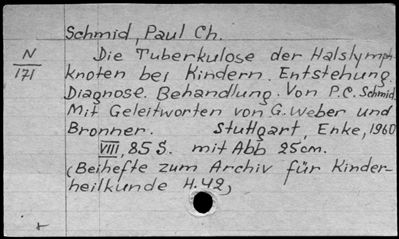 Schmid, Paul Ch.
N
171
Die Tuberkulose der Halslymph-
knoten bei Kindern. Entstehung.
Diagnose. Behandlung. Von P.C. Schmid.
Mit Geleitworten von G. Weber und
Bronner. Stuttgart, Enke, 1960
VIII, 85 S. mit Abb 25cm.
(Beihefte zum Archiv für Kinder-
heilkunde H.42)
+